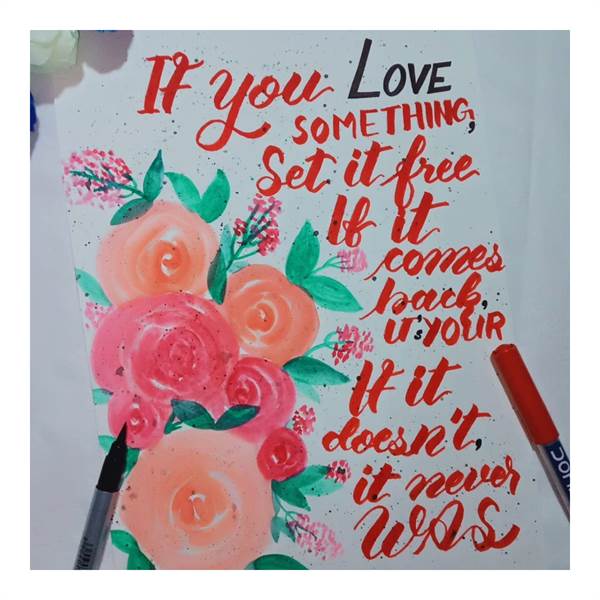 If you LOVE
SOMETHING,
Set it free
If it
comes
back,
IT'S YOUR
If it
doesn't,
it never
WAS